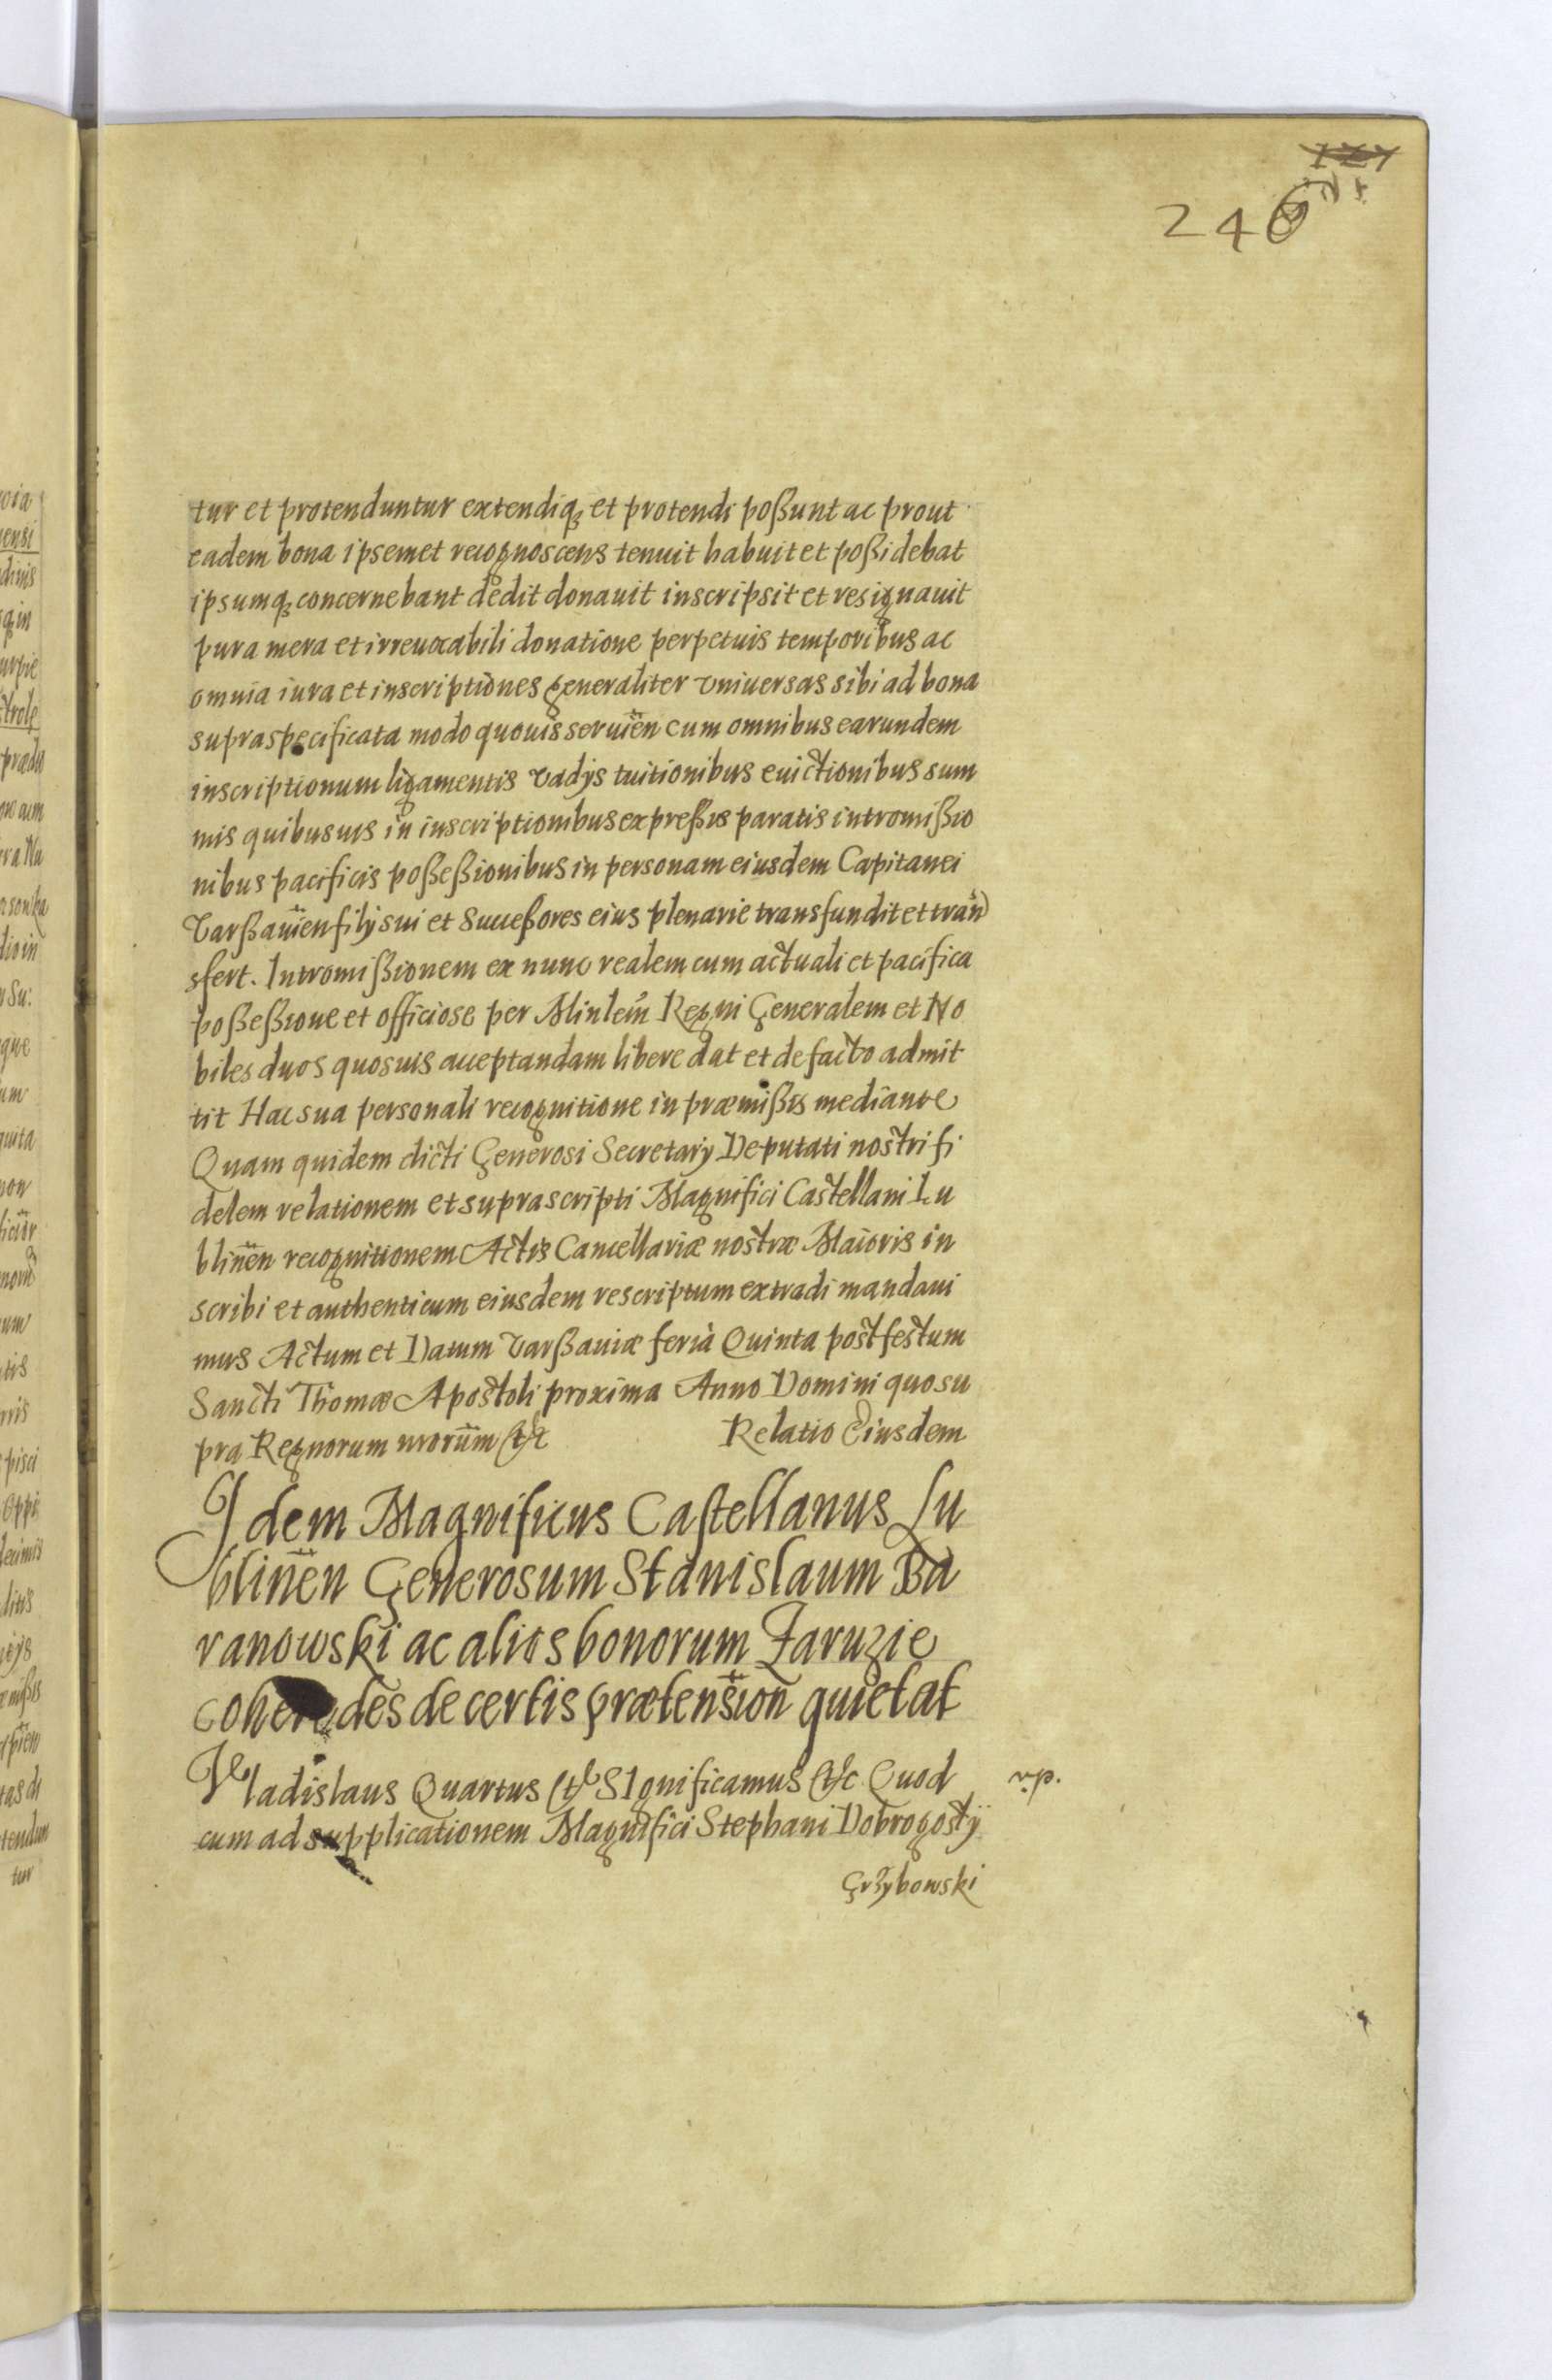 246
tur et protenduntur extendiq; et protendi poßunt ac prout
eadem bona ipsemet recognoscens tenuit habuit et poßidebat
ipsumq; concernebant dedit donauit inscripsit et resignauit
pura mera et irreuocabili donatione perpetuis temporibus ac
omnia iura et inscriptiones generaliter vniuersas sibi ad bona
supraspecificata modo quouis seruien̄ cum omnibus earundem
inscriptionum ligamentis vadys tuitionibus euictionibus sum
mis quibusuis in inscriptionibus expreßis paratis intromißio
nibus pacificis poßeßionibus in personam eiusdem Capitanei
Varßauien̄ filij sui et Succeßores eius plenarie transfundit et tran
sfert. Intromißionem ex nunc realem cum actuali et pacifica
poßeßione et officiose per Minlem̄ Regni Generalem et No
biles duos quosuis acceptandam libere dat et de facto admit
tit Hac sua personali recognitione in præmißis mediante
Quam quidem dicti Generosi Secretarij Deputati nostri fi
delem relationem et suprascripti Magnifici Castellani Lu
blinen̄ recognitionem Actis Cancellariæ nostræ Maioris in
scribi et authenticum eiusdem rescriptum extradi mandaui
mus Actum et Datum Varßauiæ feria Quinta post festum
Sancti Thomæ Apostoli proxima Anno Domini quo su
pra Regnorum nrorum̄ &c Relatio Eiusdem
Idem Magnificus Castellanus Lu
blinen̄ Generosum Stanislaum Ba
ranowski ac alios bonorum Zaruzie
coheredes de certis prætension̄ quietat
Vladislaus Quartus &c SIgnificamus &c Quod
r.p.
cum ad supplicationem Magnifici Stephani Dobrogosty
Grzybowski